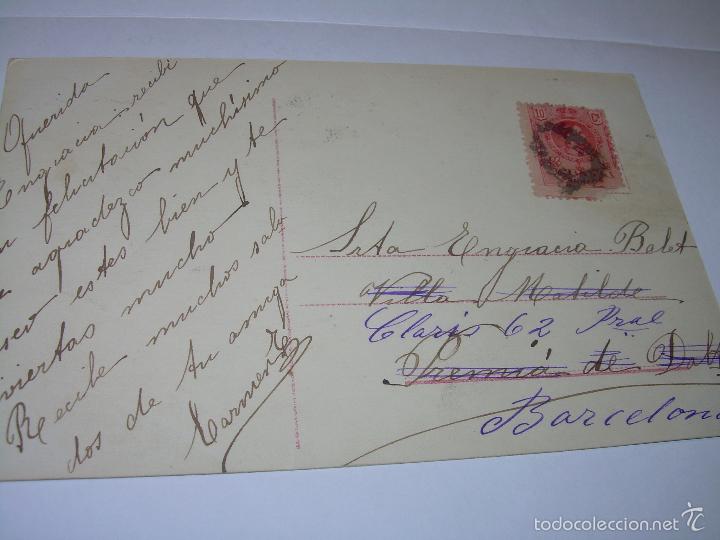 Querida
Engracia: recibi
tu felicitación que
te agradezco muchísimo
deseo estes bien y te
diviertas mucho
Recibe muchos salu
dos de tu amiga
Carmen
10 Cs
Srta Engracia Balet
Villa Matilde
Claris 62 Pral
Premiá de Dalt
Barcelona
todocoleccion.net